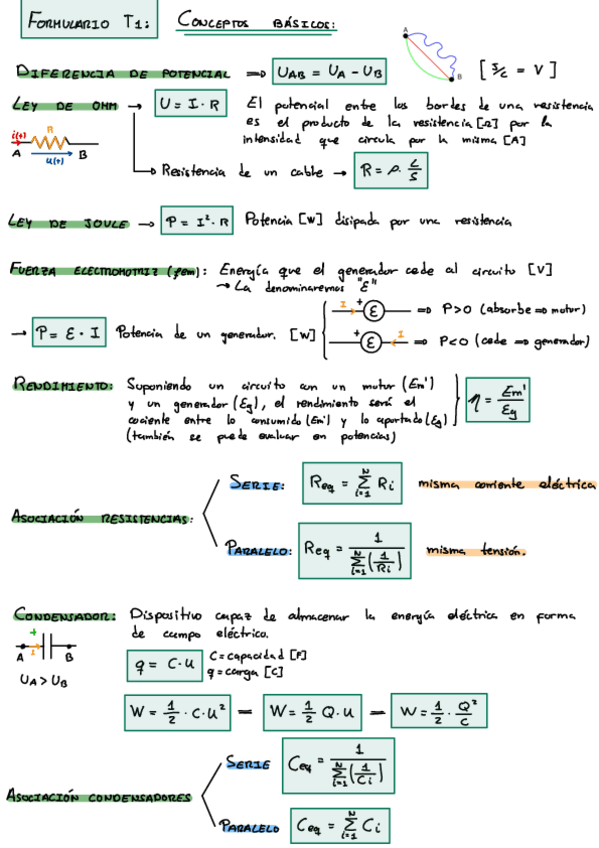 FORMULARIO T1: CONCEPTOS BÁSICOS:
DIFERENCIA DE POTENCIAL ⟹ U_AB = U_A - U_B [J/C = V]
A
B
LEY DE OHM → U = I · R El potencial entre los bordes de una resistencia
es el producto de la resistencia [Ω] por la
intensidad que circula por la misma [A]
i(t) R
A u(t) B
Resistencia de un cable → R = ρ · L/S
LEY DE JOULE → P = I² · R Potencia [W] disipada por una resistencia
FUERZA ELECTROMOTRIZ (fem): Energía que el generador cede al circuito [V]
→ La denominaremos "ε"
→ P = ε · I Potencia de un generador. [W]
I + ε ⟹ P>0 (absorbe ⟹ motor)
+ ε I ⟹ P<0 (cede ⟹ generador)
RENDIMIENTO: Suponiendo un circuito con un motor (Em')
y un generador (Eg), el rendimiento será el
cociente entre lo consumido (Em') y lo aportado (Eg)
(también se puede evaluar en potencias)
η = Em'/Eg
ASOCIACIÓN RESISTENCIAS:
SERIE: Req = Σ_{i=1}^{N} Ri misma corriente eléctrica
PARALELO: Req = 1/(Σ_{i=1}^{N} (1/Ri)) misma tensión.
CONDENSADOR: Dispositivo capaz de almacenar la energía eléctrica en forma
de campo eléctrico.
+
A I B
U_A > U_B
q = C · U C = capacidad [F]
q = carga [C]
W = 1/2 · C · U² = W = 1/2 Q · U = W = 1/2 · Q²/C
ASOCIACIÓN CONDENSADORES
SERIE Ceq = 1/(Σ_{i=1}^{N} (1/Ci))
PARALELO Ceq = Σ_{i=1}^{N} Ci